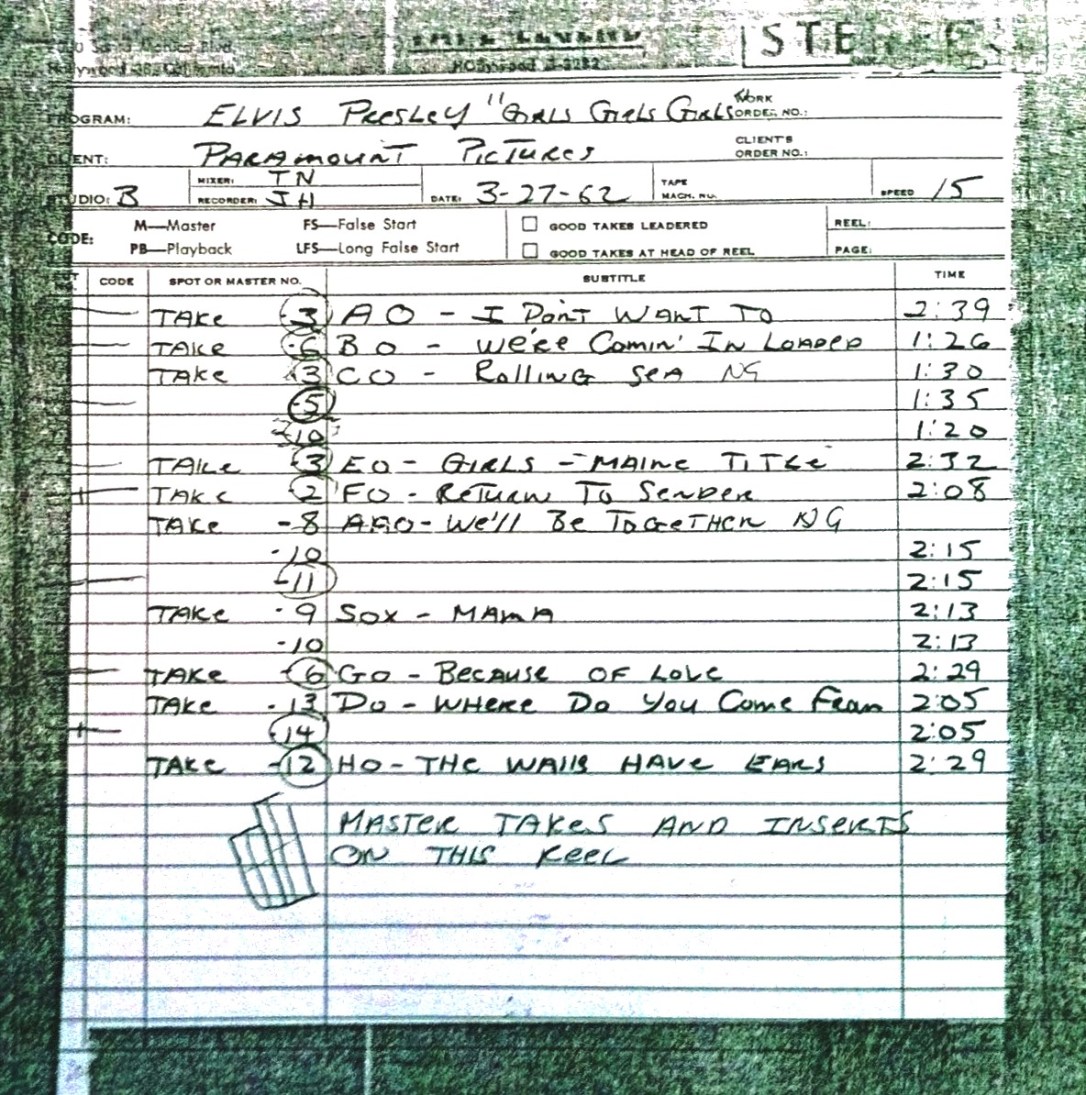 Hollywood 38, California
STE
PROGRAM: ELVIS PRESLEY "GIRLS GIRLS GIRLS WORK ORDER NO.:
CLIENT: PARAMOUNT PICTURES CLIENT'S ORDER NO.:
STUDIO: B MIXER: TN RECORDER: JH DATE: 3-27-62 TAPE MACH. NO. SPEED 15
CODE: M—Master FS—False Start GOOD TAKES LEADERED REEL:
PB—Playback LFS—Long False Start GOOD TAKES AT HEAD OF REEL PAGE:
CODE SPOT OR MASTER NO. SUBTITLE TIME
TAKE -3 AO - I DON'T WANT TO 2:39
TAKE -6 BO - WE'RE COMIN' IN LOADED 1:26
TAKE -3 CO - ROLLING SEA NG 1:30
-5 1:35
-10 1:20
TAKE -3 EO - GIRLS - MAINE TITLE 2:32
TAKE -2 FO - RETURN TO SENDER 2:08
TAKE -8 AAO - WE'll BE TOGETHER NG
-10 2:15
-11 2:15
TAKE -9 SOX - MAMA 2:13
-10 2:13
TAKE -6 GO - BECAUSE OF LOVE 2:29
TAKE -13 DO - WHERE DO YOU COME FROM 2:05
-14 2:05
TAKE -12 HO - THE WALLS HAVE EARS 2:29
MASTER TAKES AND INSERTS
ON THIS REEL